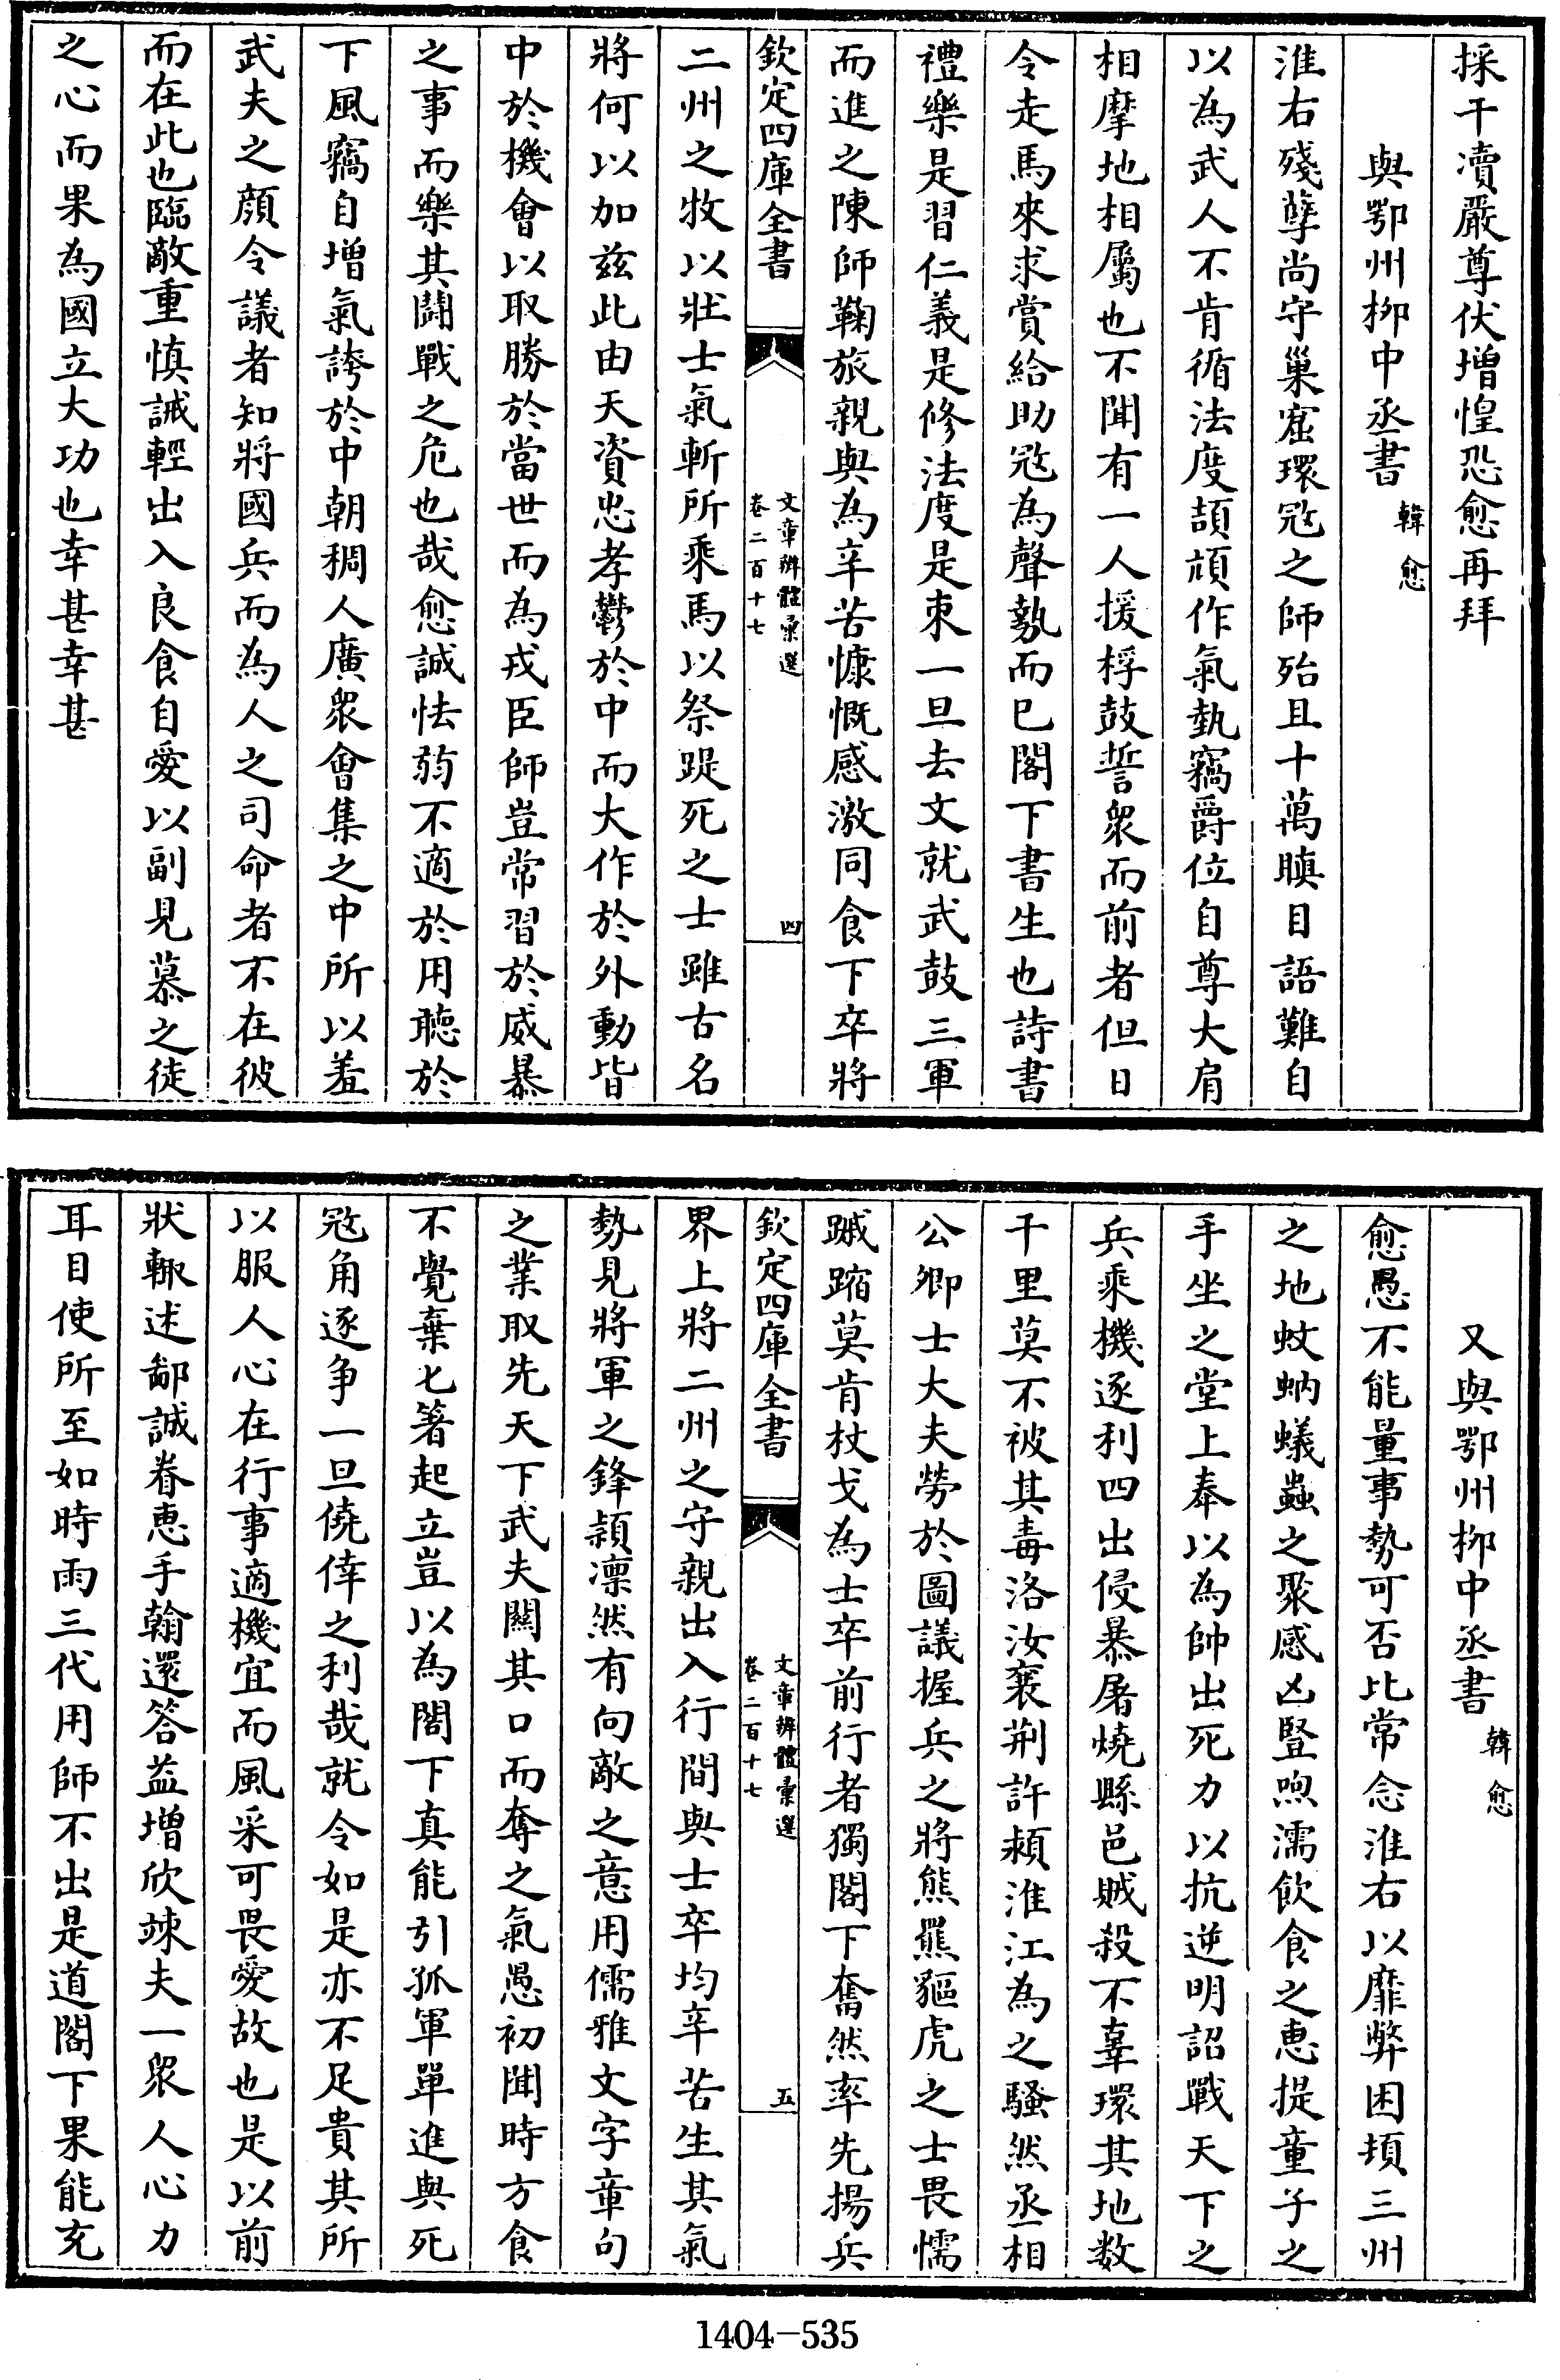 採干瀆嚴尊伏增惶恐愈再拜
與鄂州柳中丞書 韓愈
淮右殘孽尚守巢窟環冦之師殆且十萬瞋目語難自
以為武人不肯循法度頡頏作氣埶竊爵位自尊大肩
相摩地相屬也不聞有一人援桴鼓誓衆而前者但日
令走馬來求賞給助冦為聲埶而已閣下書生也詩書
禮樂是習仁義是修法度是束一旦去文就武鼓三軍
而進之陳師鞠旅親與為辛苦慷慨感激同食下卒將
欽定四庫全書
文章辨體彙選
卷二百十七
四
二州之牧以壯士氣斬所乘馬以祭踶死之士雖古名
將何以加兹此由天資忠孝鬱於中而大作於外動皆
中於機會以取勝於當世而為戎臣師豈常習於威暴
之事而樂其鬭戰之危也哉愈誠怯弱不適於用聽於
下風竊自增氣誇於中朝稠人廣衆會集之中所以羞
武夫之顔令議者知將國兵而為人之司命者不在彼
而在此也臨敵重慎誡輕出入良食自愛以副見慕之徒
之心而果為國立大功也幸甚幸甚
又與鄂州柳中丞書 韓愈
愈愚不能量事勢可否比常念淮右以靡弊困頓三州
之地蚊蚋蟻蟲之聚感凶豎喣濡飲食之惠提童子之
手坐之堂上奉以為帥出死力以抗逆明詔戰天下之
兵乘機逐利四出侵暴屠燒縣邑賊殺不辜環其地数
千里莫不被其毒洛汝襄荆許潁淮江為之騷然丞相
公卿士大夫勞於圖議握兵之將熊羆貙虎之士畏懦
蹴踖莫肯杖戈為士卒前行者獨閣下奮然率先揚兵
欽定四庫全書
文章辨體彙選
卷二百十七
五
界上將二州之守親出入行間與士卒均辛苦生其氣
勢見將軍之鋒穎凛然有向敵之意用儒雅文字章句
之業取先天下武夫關其口而奪之氣愚初聞時方食
不覺棄匕箸起立豈以為閣下真能引孤軍單進與死
冦角逐争一旦僥倖之利哉就令如是亦不足貴其所
以服人心在行事適機宜而風采可畏愛故也是以前
狀輙述鄙誠眷惠手翰還答益增欣竦夫一衆人心力
耳目使所至如時雨三代用師不出是道閣下果能充
1404-535